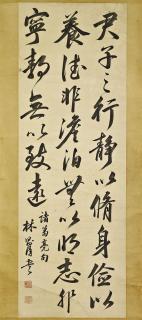 君子之行静以脩身儉以
養德非澹泊無以明志非
寧静無以致遠
諸葛亮句
林散書